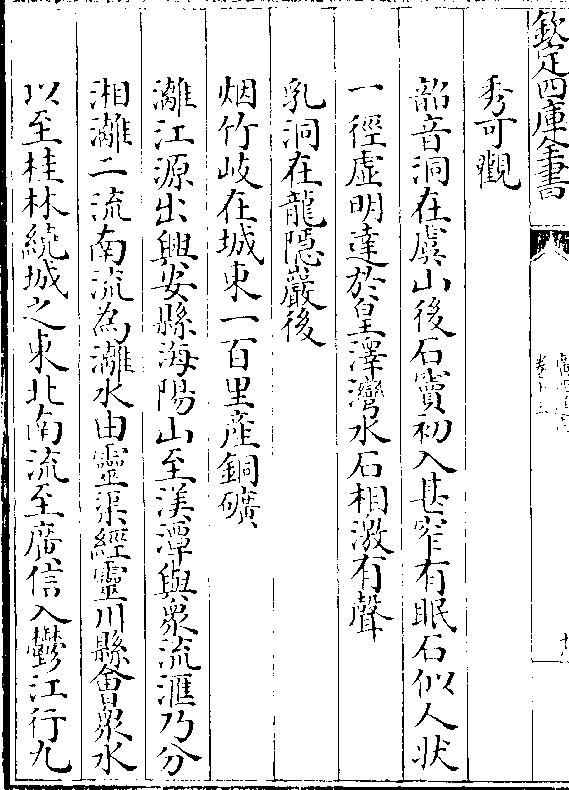 欽定四庫全書
秀可觀
韶音洞在虞山後石竇初入甚窄有眠石似人狀
一徑虛明達於皇澤灣水石相激有聲
乳洞在龍隱巖後
烟竹岐在城東一百里産銅礦
灕江源出興安縣海陽山至渼潭與衆流滙乃分
湘灕二流南流為灕水由靈渠經靈川縣會衆水
以至桂林繞城之東北南流至廣信入鬱江行九